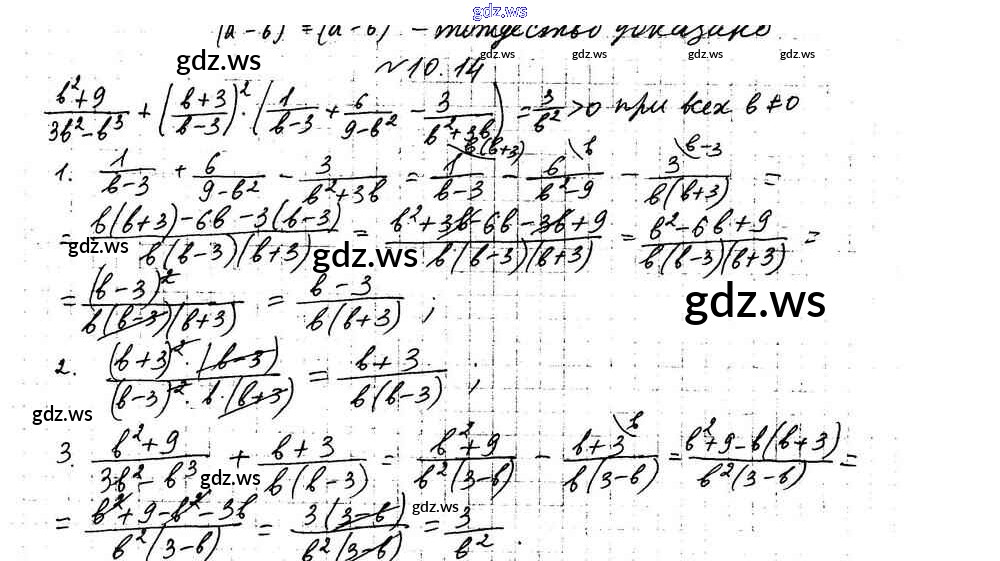 gdz.ws
(a - b) = (a - b) - тождество доказано
gdz.ws gdz.ws gdz.ws gdz.ws
№ 10.14
\frac{b^2+9}{3b^2-b^3} + \left(\frac{b+3}{b-3}\right)^2 \cdot \left(\frac{1}{b-3} + \frac{6}{9-b^2} - \frac{3}{b^2+3b}\right) = \frac{3}{b^2} > 0 при всех b ≠ 0
1. \frac{1}{b-3} + \frac{6}{9-b^2} - \frac{3}{b^2+3b} = \frac{1}{b-3}^{\b(b+3)} - \frac{6}{b^2-9}^{\b} - \frac{3}{b(b+3)}^{\b-3} =
= \frac{b(b+3)-6b-3(b-3)}{b(b-3)(b+3)} = \frac{b^2+3b-6b-3b+9}{b(b-3)(b+3)} = \frac{b^2-6b+9}{b(b-3)(b+3)} =
gdz.ws gdz.ws gdz.ws
= \frac{(b-3)^2}{b(b-3)(b+3)} = \frac{b-3}{b(b+3)} ;
gdz.ws
2. \frac{(b+3)^2 \cdot (b-3)}{(b-3)^2 \cdot b \cdot (b+3)} = \frac{b+3}{b(b-3)} ;
gdz.ws gdz.ws
3. \frac{b^2+9}{3b^2-b^3} + \frac{b+3}{b(b-3)} = \frac{b^2+9}{b^2(3-b)} - \frac{b+3}{b(3-b)}^{\b} = \frac{b^2+9-b(b+3)}{b^2(3-b)} =
gdz.ws gdz.ws
= \frac{b^2+9-b^2-3b}{b^2(3-b)} = \frac{3(3-b)}{b^2(3-b)} = \frac{3}{b^2} .